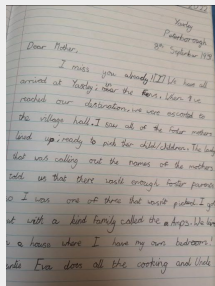 Yaxley
Peterborough
9th September 1939
Dear Mother,
I miss you already! We have all
arrived at Yaxley, near the Fens. When I've
reached our destination, we were escorted to
the village hall. I saw all of the foster mothers
lined up, ready to pick their child/children. The lady
that was calling out the names of the mothers
told us that there wasn't enough foster parents
so I was one of three that wasn't picked. I got
put with a kind family called the Amps. We live
in a house where I have my own bedroom!
Auntie Eva does all the cooking and Uncle